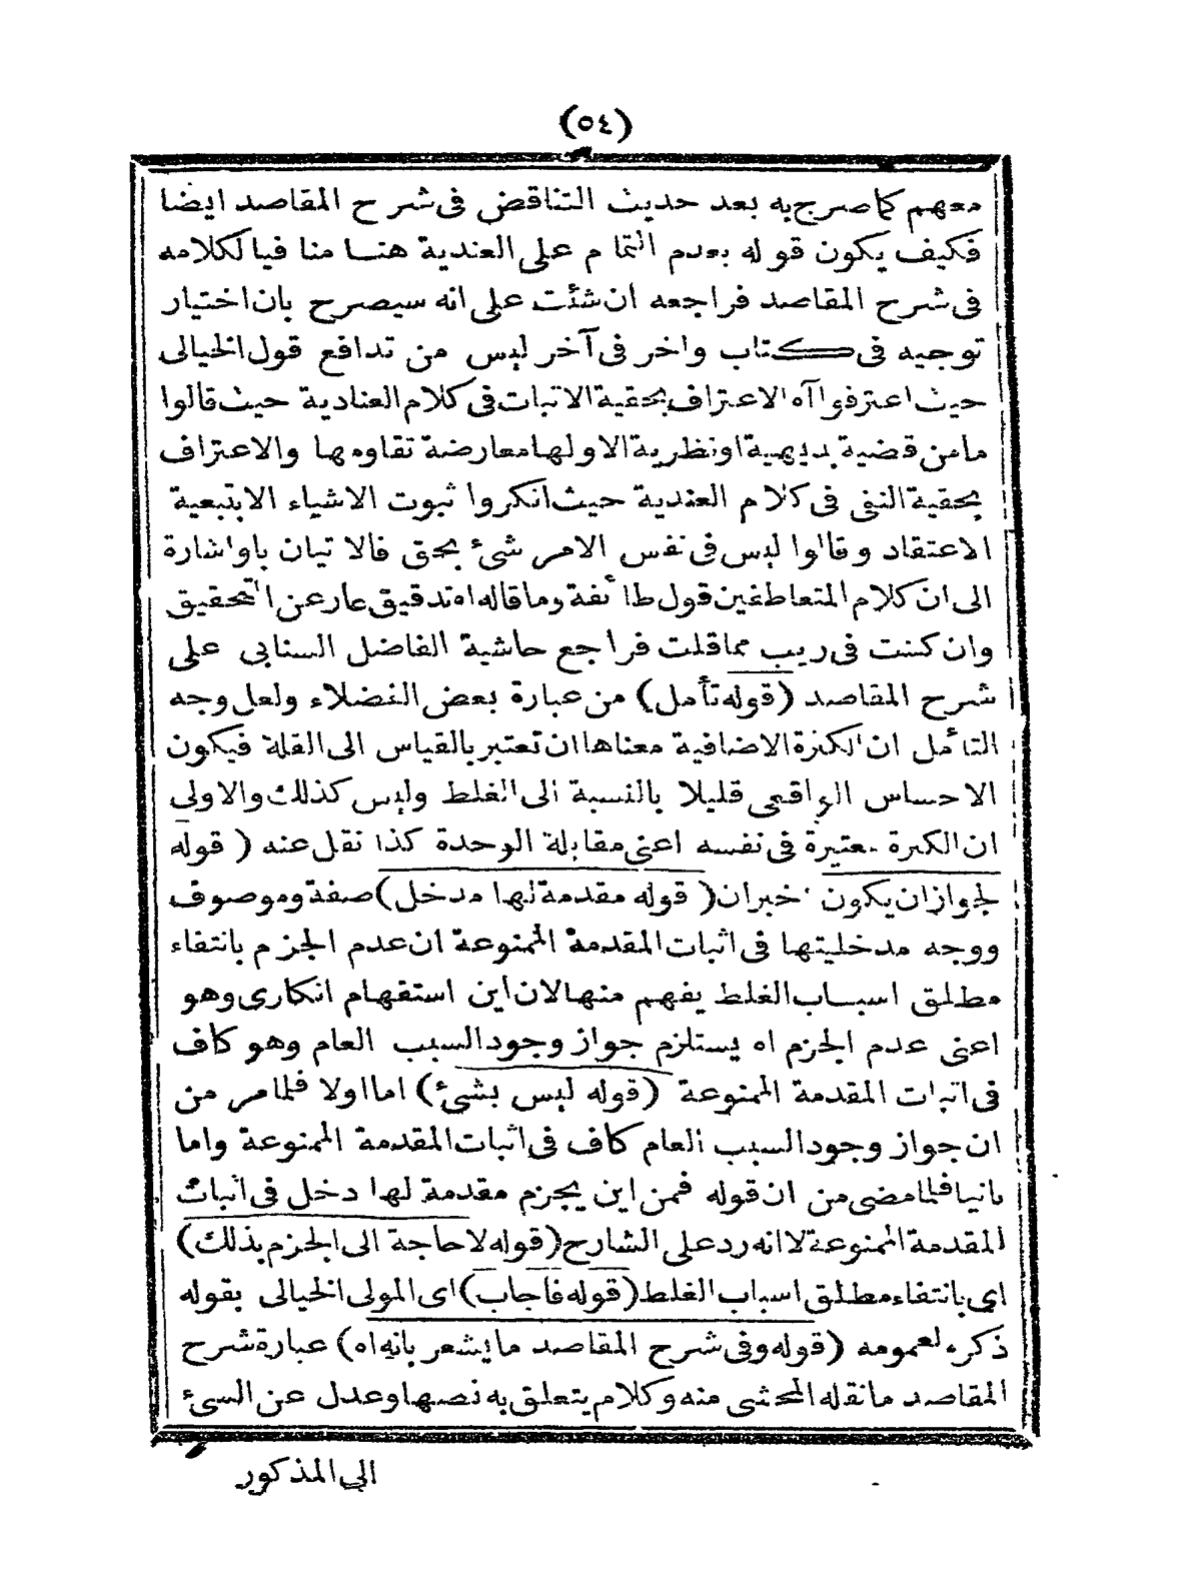 (٥٤)
معهم كما صرح به بعد حديث التناقض فى شرح المقاصد ايضا
فكيف يكون قوله بعدم التمام على العندية هنا منا فيا لكلامه
فى شرح المقاصد فراجعه ان شئت على انه سيصرح بان اختيار
توجيه فى كتاب واخر فى آخر ليس من تدافع قول الخيالى
حيث اعترفوا آه الاعتراف بحقية الاثبات فى كلام العنادية حيث قالوا
مامن قضية بديهية او نظرية الا ولها معارضة تقاومها والاعتراف
بحقية النفى فى كلام العندية حيث انكروا ثبوت الاشياء الا بتبعية
الاعتقاد وقالوا ليس فى نفس الامر شئ بحق فالاتيان باو اشارة
الى ان كلام المتعاطفين قول طائفة وما قاله اه تدقيق عار عن التحقيق
وان كنت فى ريب مما قلت فراجع حاشية الفاضل السنابى على
شرح المقاصد (قوله تأمل) من عبارة بعض الفضلاء ولعل وجه
التأمل ان الكثرة الاضافية معناها ان تعتبر بالقياس الى القلة فيكون
الاحساس الواقعى قليلا بالنسبة الى الغلط وليس كذلك والاولى
ان الكثرة معتبرة فى نفسه اعنى مقابلة الوحدة كذا نقل عنه (قوله
لجواز ان يكون خبران (قوله مقدمة لها مدخل) صفة وموصوف
ووجه مدخليتها فى اثبات المقدمة الممنوعة ان عدم الجزم بانتفاء
مطلق اسباب الغلط يفهم منها لان اين استفهام انكارى وهو
اعنى عدم الجزم اه يستلزم جواز وجود السبب العام وهو كاف
فى اثبات المقدمة الممنوعة (قوله ليس بشئ) اما اولا فلما مر من
ان جواز وجود السبب العام كاف فى اثبات المقدمة الممنوعة واما
ثانيا فلما مضى من ان قوله فمن اين يجزم مقدمة لها دخل فى اثبات
المقدمة الممنوعة لا انه رد على الشارح (قوله لا حاجة الى الجزم بذلك)
اى بانتفاء مطلق اسباب الغلط (قوله فاجاب) اى المولى الخيالى بقوله
ذكره لعمومه (قوله وفى شرح المقاصد ما يشعر بانه اه) عبارة شرح
المقاصد ما نقله المحشى منه وكلام يتعلق به نصها وعدل عن السئ
الى المذكور